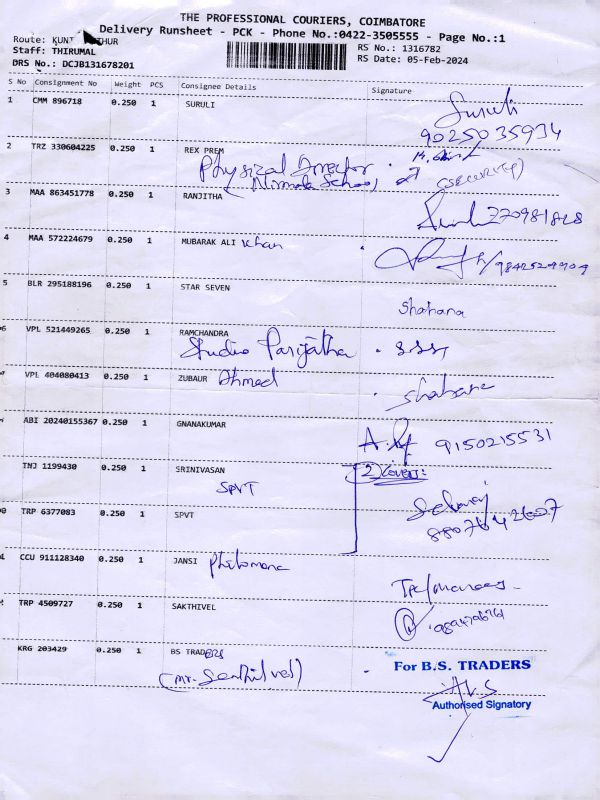 THE PROFESSIONAL COURIERS, COIMBATORE
Delivery Runsheet - PCK - Phone No.:0422-3505555 - Page No.:1
Route:
Staff: THIRUMAL
DRS No.: DCJB131678201
RS No.: 1316782
RS Date: 05-Feb-2024
S No Consignment No Weight PCS Consignee Details Signature
1 CMM 896718 0.250 1 SURULI Suruli
9025035934
2 TRZ 330604225 0.250 1 REX PREM
Physical Director
Nirmala School (SECURITY)
3 MAA 863451778 0.250 1 RANJITHA
4 MAA 572224679 0.250 1 MUBARAK ALI Khan
5 BLR 295188196 0.250 1 STAR SEVEN Shahana
VPL 521449265 0.250 1 RAMCHANDRA
Studio Parijatha
VPL 404080413 0.250 1 ZUBAUR Ahmed Shahana
ABI 20240155367 0.250 1 GNANAKUMAR 9150215531
TNJ 1199430 0.250 1 SRINIVASAN 2 Covers:
SPVT
TRP 6377083 0.250 1 SPVT
CCU 911128340 0.250 1 JANSI Philomena
TRP 4509727 0.250 1 SAKTHIVEL
KRG 203429 0.250 1 BS TRADERS
(Mr. Senthilvel)
For B.S. TRADERS
Authorised Signatory